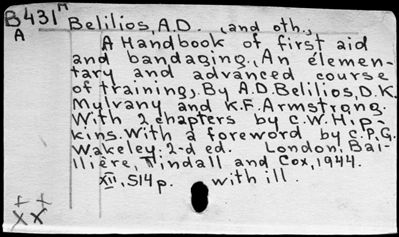 B431м Belilios, A.D. (and oth.,
A A Handbook of first aid
and bandaging., An elemen-
tary and advanced course
of training., By A.D. Belilios, D.K.
Mulvany and K.F. Armstrong.
With 2 chapters by C.W. Hip-
kins. With a foreword by C.P.G.
Wakeley. 2-d ed. London, Bai-
llière, Tindall and Cox, 1944.
XII, 514 p. with ill.
++
XX